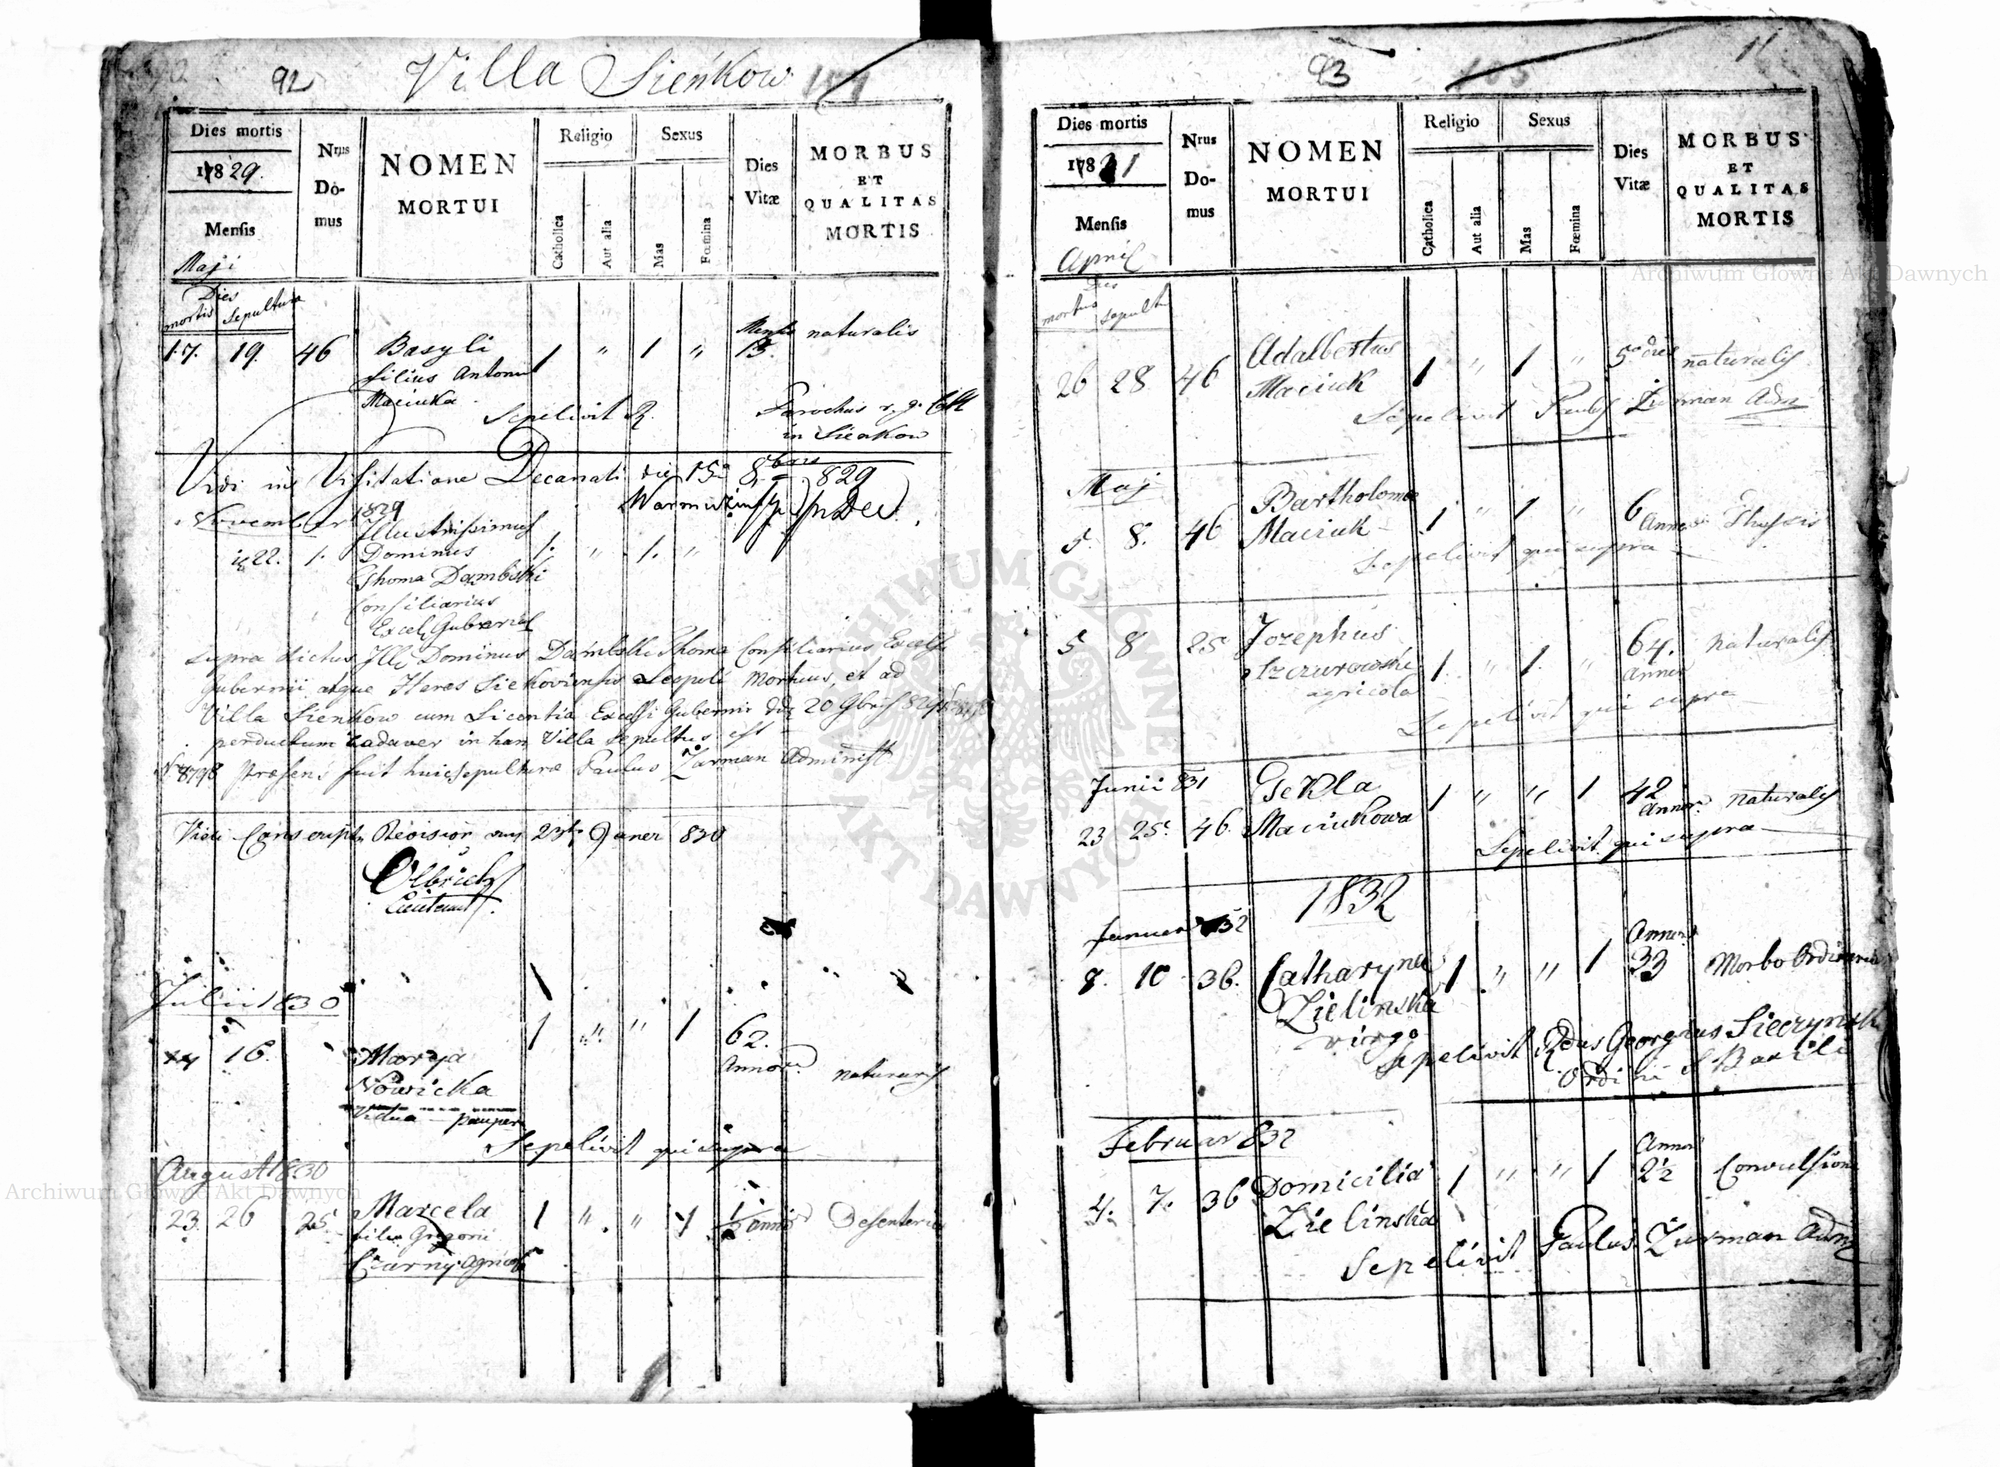 92 Villa Sieńkow
Dies mortis
1829.
Mensis
Maji
Nrus
Do-
mus
NOMEN
MORTUI
Religio
Catholica
Aut alia
Sexus
Mas
Fœmina
Dies
Vitæ
MORBUS
ET
QUALITAS
MORTIS
Dies
mortis sepultura
17. 19. 46 Basyli 1 " 1 " 13. naturalis
filius Antonii
Maciuka
Sepelivit R. Parochus r. g. Catt
in Sienkow
Vidi in Visitatione Decanali die 15a 8bris 829
November 1829
Illustrissimus
22. 1. Dominus 1. " 1. "
Thoma Dąmbski
Consiliarius
Excel Gubernii
supra dictus Illŕ Dominus Dąmbski Thoma Consiliarius Excelsi
Gubernii, atque Heres Siekoviensis Leopoli mortuus, et ad
Villa Sienkow cum Licentia Excelsi Gubernii 20 9bris 829
perductum Cadaver in han Villa sepultus est
præsens fuit huic sepulturæ Paulus Zurman Administ
Vidi Conscript Revision am 23t Janer 830
Olbrich
Lieutenant
Julii 1830
16. Marya 1 " " 1 62. naturalis
Annor
Nowicka
Vidua pauper
Sepelivit qui supra
August 1830
23. 26 25 Marcela 1 " " 1 1/2 anni Desenteria
filia Grigorii
Czarny agricola
93 105
Dies mortis
1831
Mensis
April
Nrus
Do-
mus
NOMEN
MORTUI
Religio
Catholica
Aut alia
Sexus
Mas
Fœmina
Dies
Vitæ
MORBUS
ET
QUALITAS
MORTIS
Dies
mortis sepult
26 28. 46 Adalbertus 1 " 1 " 5. dies naturalis
Maciuk
Sepelivit Paulus Zurman Adm
Maj
5. 8. 46 Bartholome 1 " 1 " 6 Anno Thussis
Maciuk
Sepelivit qui supra
5 8 25 Jozephus 1. " 1. " 64. naturalis
Szczurowski Annor
agricola
Sepelivit qui supra
Junii 831
23 25. 46. Tekla 1 " " 1 42 naturalis
Maciukowa Annor
Sepelivit qui supra
1832
Januer 832
8. 10 36. Catharyna 1 " " 1 Annor 33 Morbo Ordinario
Zielinska
virgo
Sepelivit Rdus Georgius Sieczynski
Ordinis S Basili
Februar 832
4. 7. 36 Domicilia 1 " " 1 Annor 2½ Convulsione
Zielinska
Sepelivit Paulus Zurman Adm
Archiwum Główne Akt Dawnych
Archiwum Główne Akt Dawnych
ARCHIWUM GŁÓWNE AKT DAWNYCH